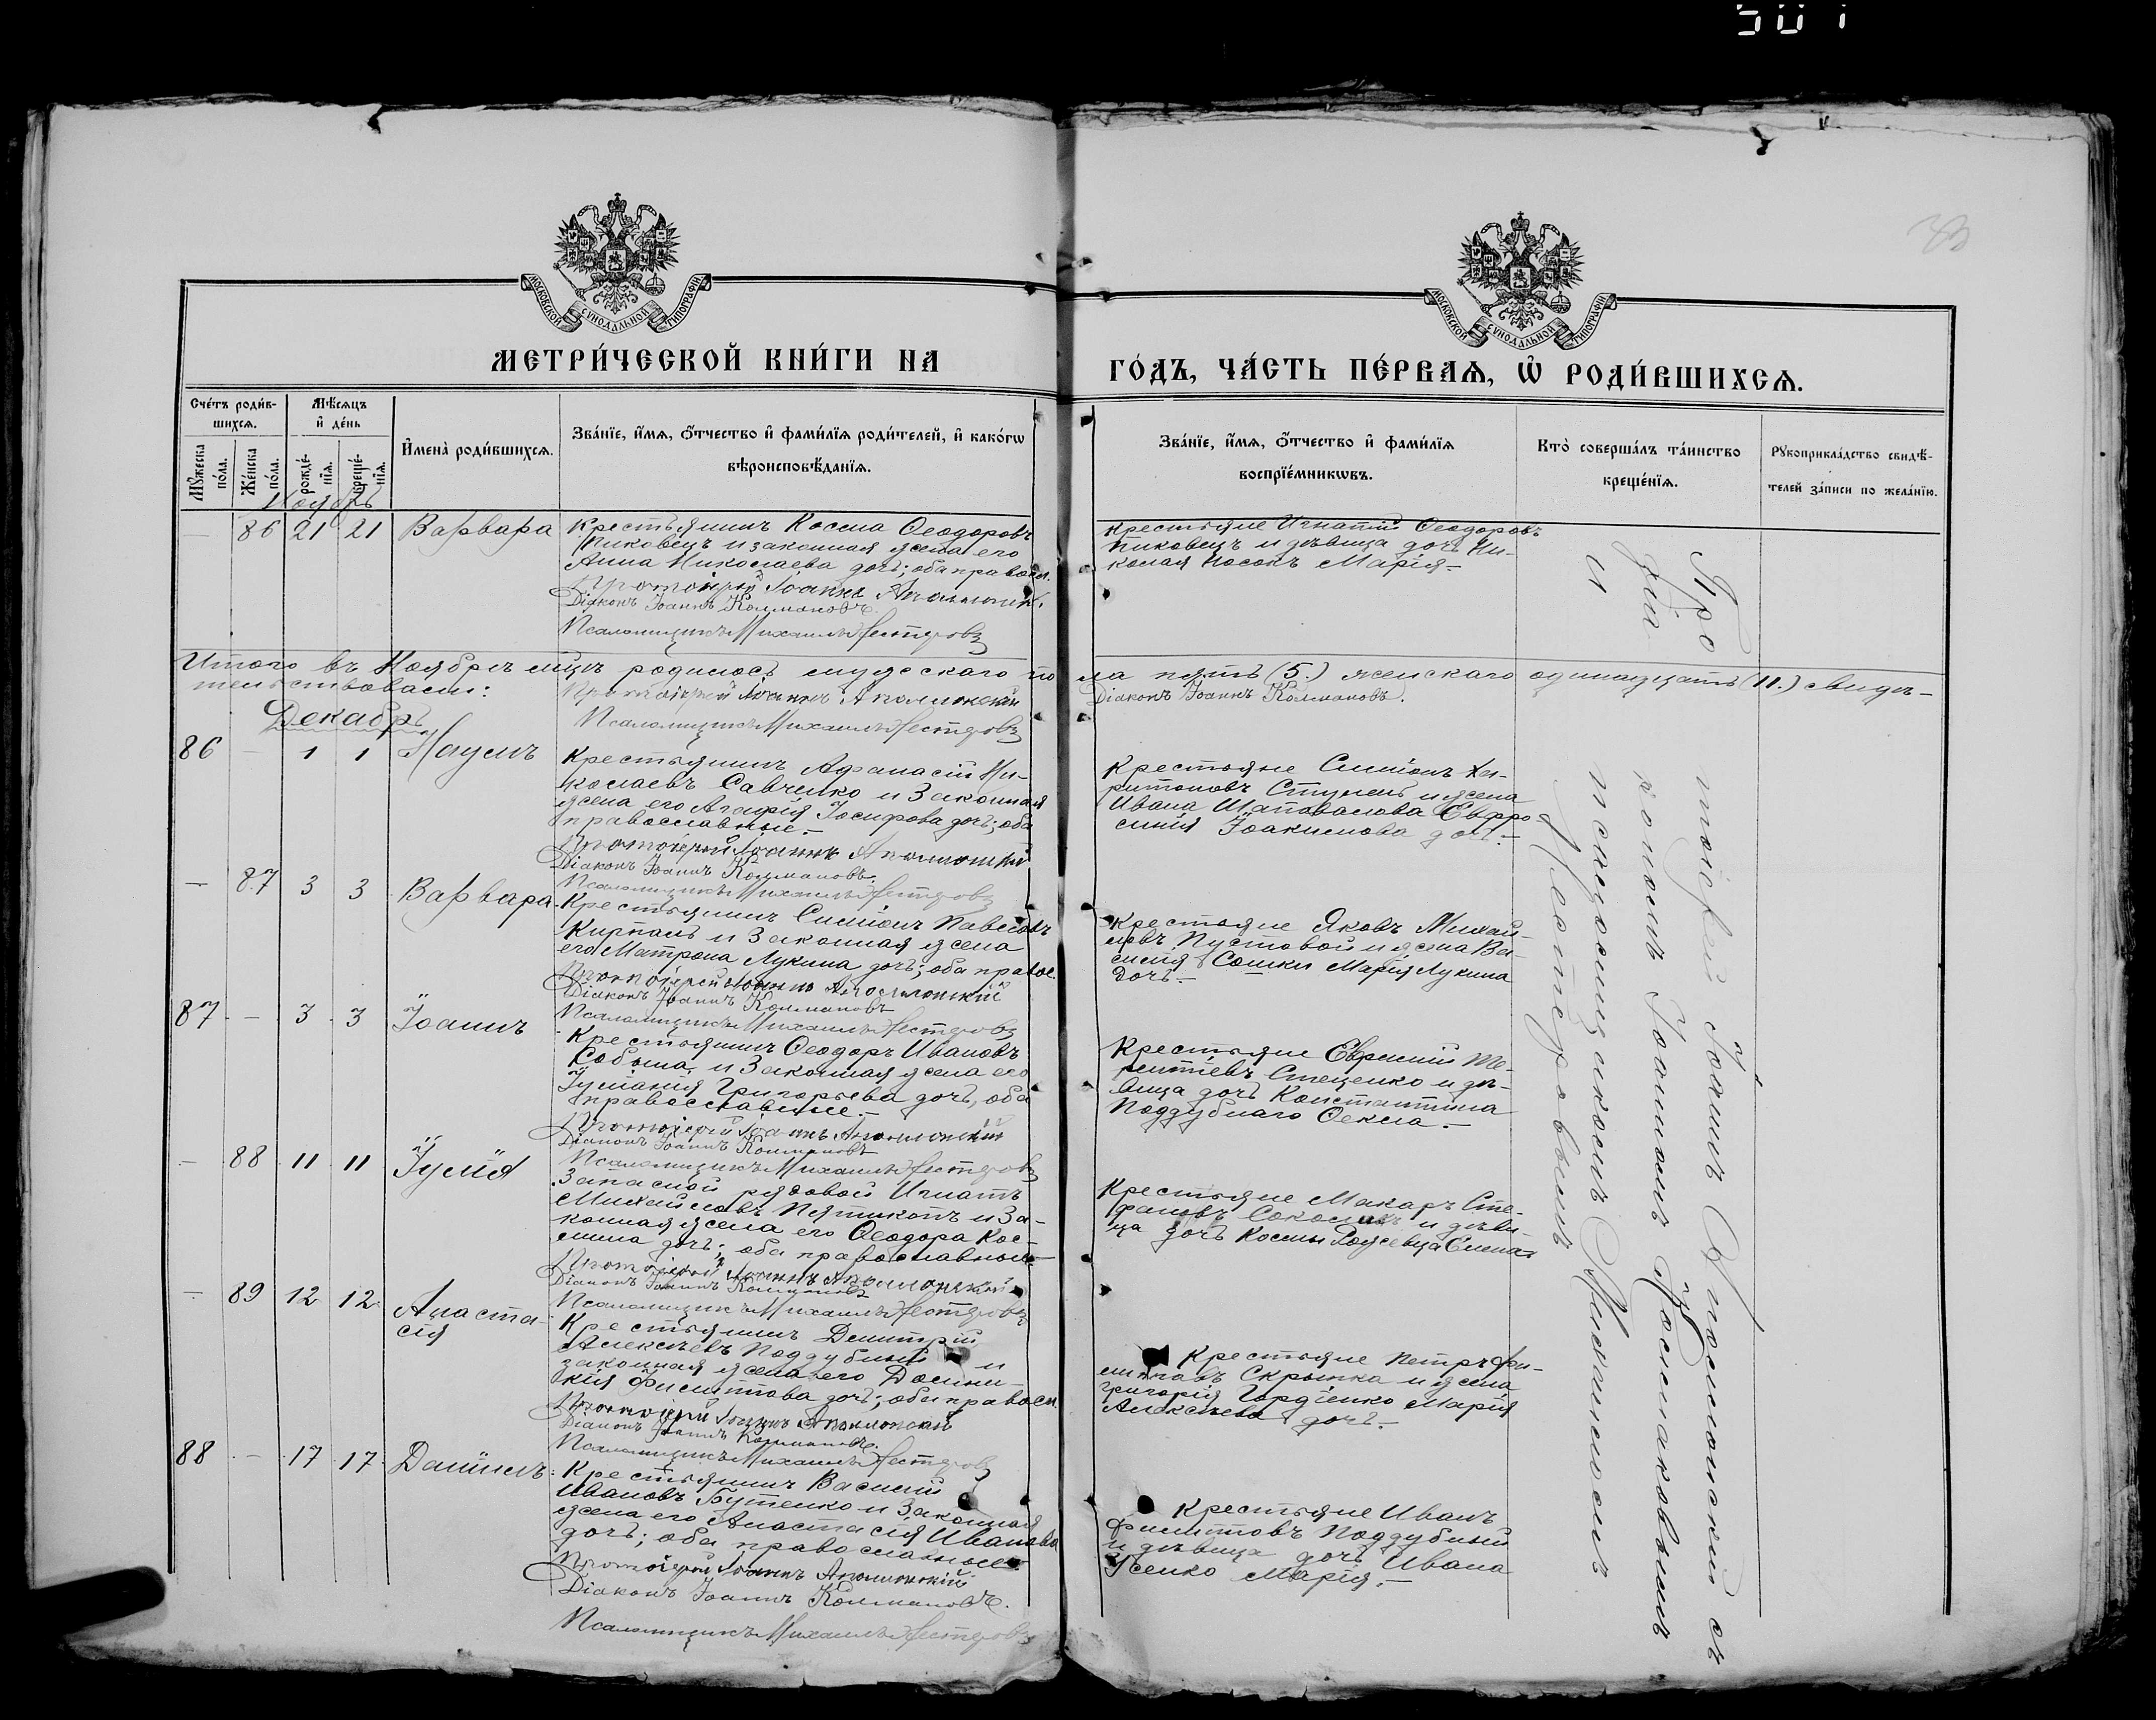 501
МОСКОВСКОЙ СУНОДАЛЬНОЙ ТИПОГРАФІИ
МОСКОВСКОЙ СУНОДАЛЬНОЙ ТИПОГРАФІИ
МЕТРИ́ЧЕСКОЙ КНИ́ГИ НА
ГО́ДЪ, ЧА́СТЬ ПЕ́РВАѦ, Ѡ҆ РОДИ́ВШИХСѦ.
Сче́тъ роди́в-
шихсѧ.
Мꙋ́жеска по́ла.
Же́нска по́ла.
Мѣ́сѧцъ
и҆ де́нь
рожде́-
нїѧ.
креще́-
нїѧ.
И҆мена̀ роди́вшихсѧ.
Зва́нїе, и҆́мѧ, ѻ҆́тчество и҆ фами́лїѧ роди́телей, и҆ како́гѡ
вѣроисповѣ́данїѧ.
Зва́нїе, и҆́мѧ, ѻ҆́тчество и҆ фами́лїѧ
воспрїе́мникѡвъ.
Кто̀ соверша́лъ та́инство
креще́нїѧ.
Рꙋкоприкла́дство свидѣ́-
телей за́писи по жела́нїю.
Ноябрь
— 86 21 21 Варвара
Крестьянинъ Косма Ѳеодоровъ
Пиковецъ и законная жена его
Анна Николаева дочь; оба правосл.
Протоіерей Іоаннъ Аполлонскій
Діаконъ Іоаннъ Колмаковъ.
Псаломщикъ Михаилъ Нестеровъ
Крестьяне Игнатій Ѳеодоровъ
Пиковецъ и дѣвица дочь Ни-
колая Носокъ Марія.—
Итого въ Ноябрѣ мцѣ родилось мужескаго по
ла пять (5.) женскаго одинадцать (11.) Свидѣ-
тельствовали:
Протоіерей Іоаннъ Аполлонскій
Діаконъ Іоаннъ Колмаковъ.
Псаломщикъ Михаилъ Нестеровъ
Декабрь
86 — 1 1 Наумъ
Крестьянинъ Афанасій Ни-
колаевъ Савченко и Законная
жена его Агафія Іосифова дочь; оба
православные.—
Протоіерей Іоаннъ Аполлонскій
Діаконъ Іоаннъ Колмаковъ.
Псаломщикъ Михаилъ Нестеровъ
Крестьяне Симіонъ Ха-
ритоновъ и жена
Ивана Шаповалова Евфро-
синія Іоакимова дочь.—
— 87 3 3 Варвара
Крестьянинъ Симіонъ Павловъ
и Законная жена
его Матрона Лукина дочь; оба правос.
Протоіерей Іоаннъ Аполлонскій
Діаконъ Іоаннъ Колмаковъ
Псаломщикъ Михаилъ Нестеровъ
Крестьяне Яковъ Михай-
ловъ Пустовой и жена Ва-
силія Сошки Марія Лукина
дочь.—
87 — 3 3 Іоаннъ
Крестьянинъ Ѳеодоръ Ивановъ
и Законная жена его
Іуліанія Григорьева дочь, оба
православные.—
Протоіерей Іоаннъ Аполлонскій
Діаконъ Іоаннъ Колмаковъ
Псаломщикъ Михаилъ Нестеровъ
Крестьяне Евфимій Те-
рентіевъ Стеценко и дѣ-
вица дочь Константина
Поддубнаго Ѳекла.—
— 88 11 11 Іулія
Запасной рядовой Игнатъ
Михайловъ и За-
конная жена его Ѳеодора Кос-
мина дочь; оба православные—
Протоіерей Іоаннъ Аполлонскій
Діаконъ Іоаннъ Колмаковъ
Псаломщикъ Михаилъ Нестеровъ
Крестьяне Макаръ Сте-
фановъ и дѣви-
ца дочь Космы Елена
— 89 12 12 Анаста-
сія
Крестьянинъ Димитрій
Алексѣевъ Поддубный и
законная жена его Домни-
кія Филиппова дочь; оба правосл.
Протоіерей Іоаннъ Аполлонскій
Діаконъ Іоаннъ Колмаковъ.
Псаломщикъ Михаилъ Нестеровъ
Крестьяне Петръ Фи-
липповъ Скрыпка и жена
Григорія Гордіенко Марія
Алексѣева дочь.—
88 — 17 17 Даніилъ
Крестьянинъ Василій
Ивановъ Бутенко и Законная
жена его Анастасія Иванова
дочь; оба православные.
Протоіерей Іоаннъ Аполлонскій
Діаконъ Іоаннъ Колмаковъ.
Псаломщикъ Михаилъ Нестеровъ
Крестьяне Иванъ
Филипповъ Поддубный
и дѣвица дочь Ивана
Усенко Марія.—
Протоіерей Іоаннъ Аполлонскій съ
діакономъ Іоанномъ Колмаковымъ
и псаломщикомъ Михаиломъ
Нестеровымъ